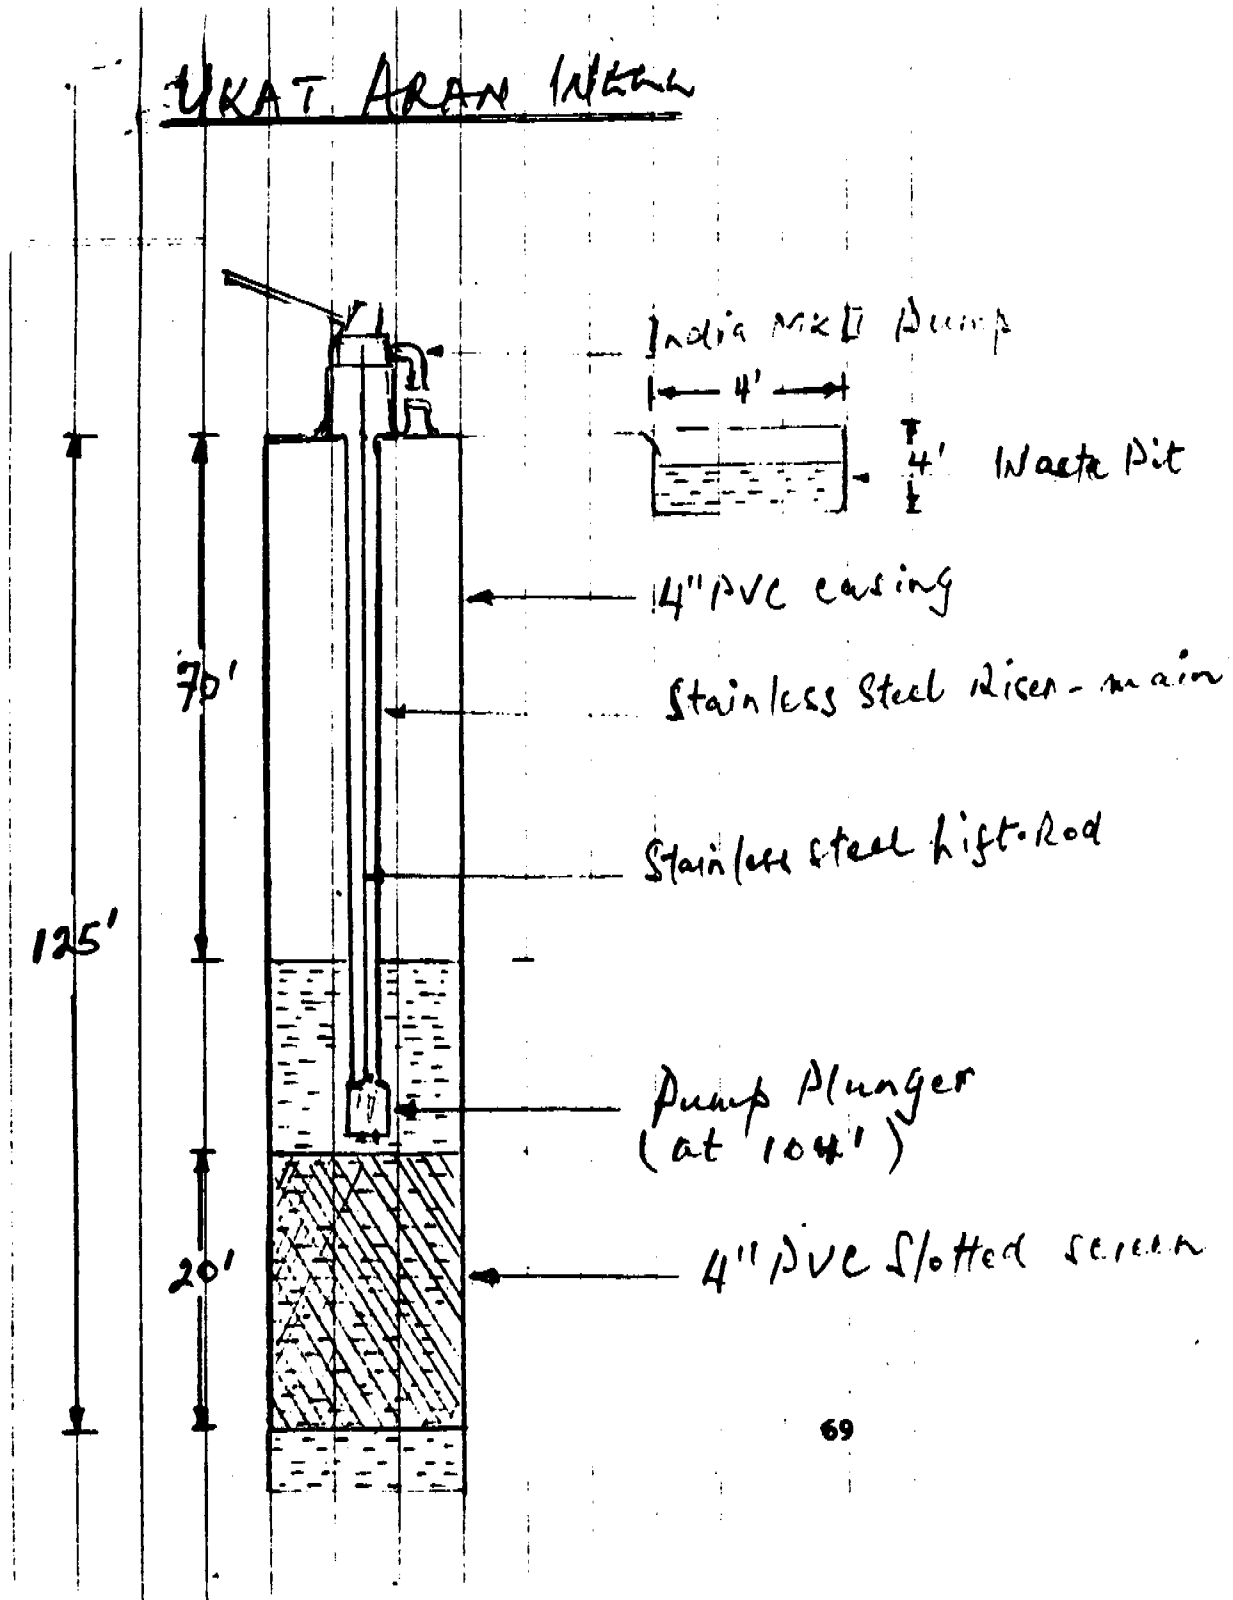 UKAT ARAN WELL
India MK II Pump
4'
4' Waste Pit
4" PVC casing
70'
Stainless Steel Riser-main
Stainless steel Lift-Rod
125'
Pump Plunger
(at 104')
20'
4" PVC Slotted screen
69